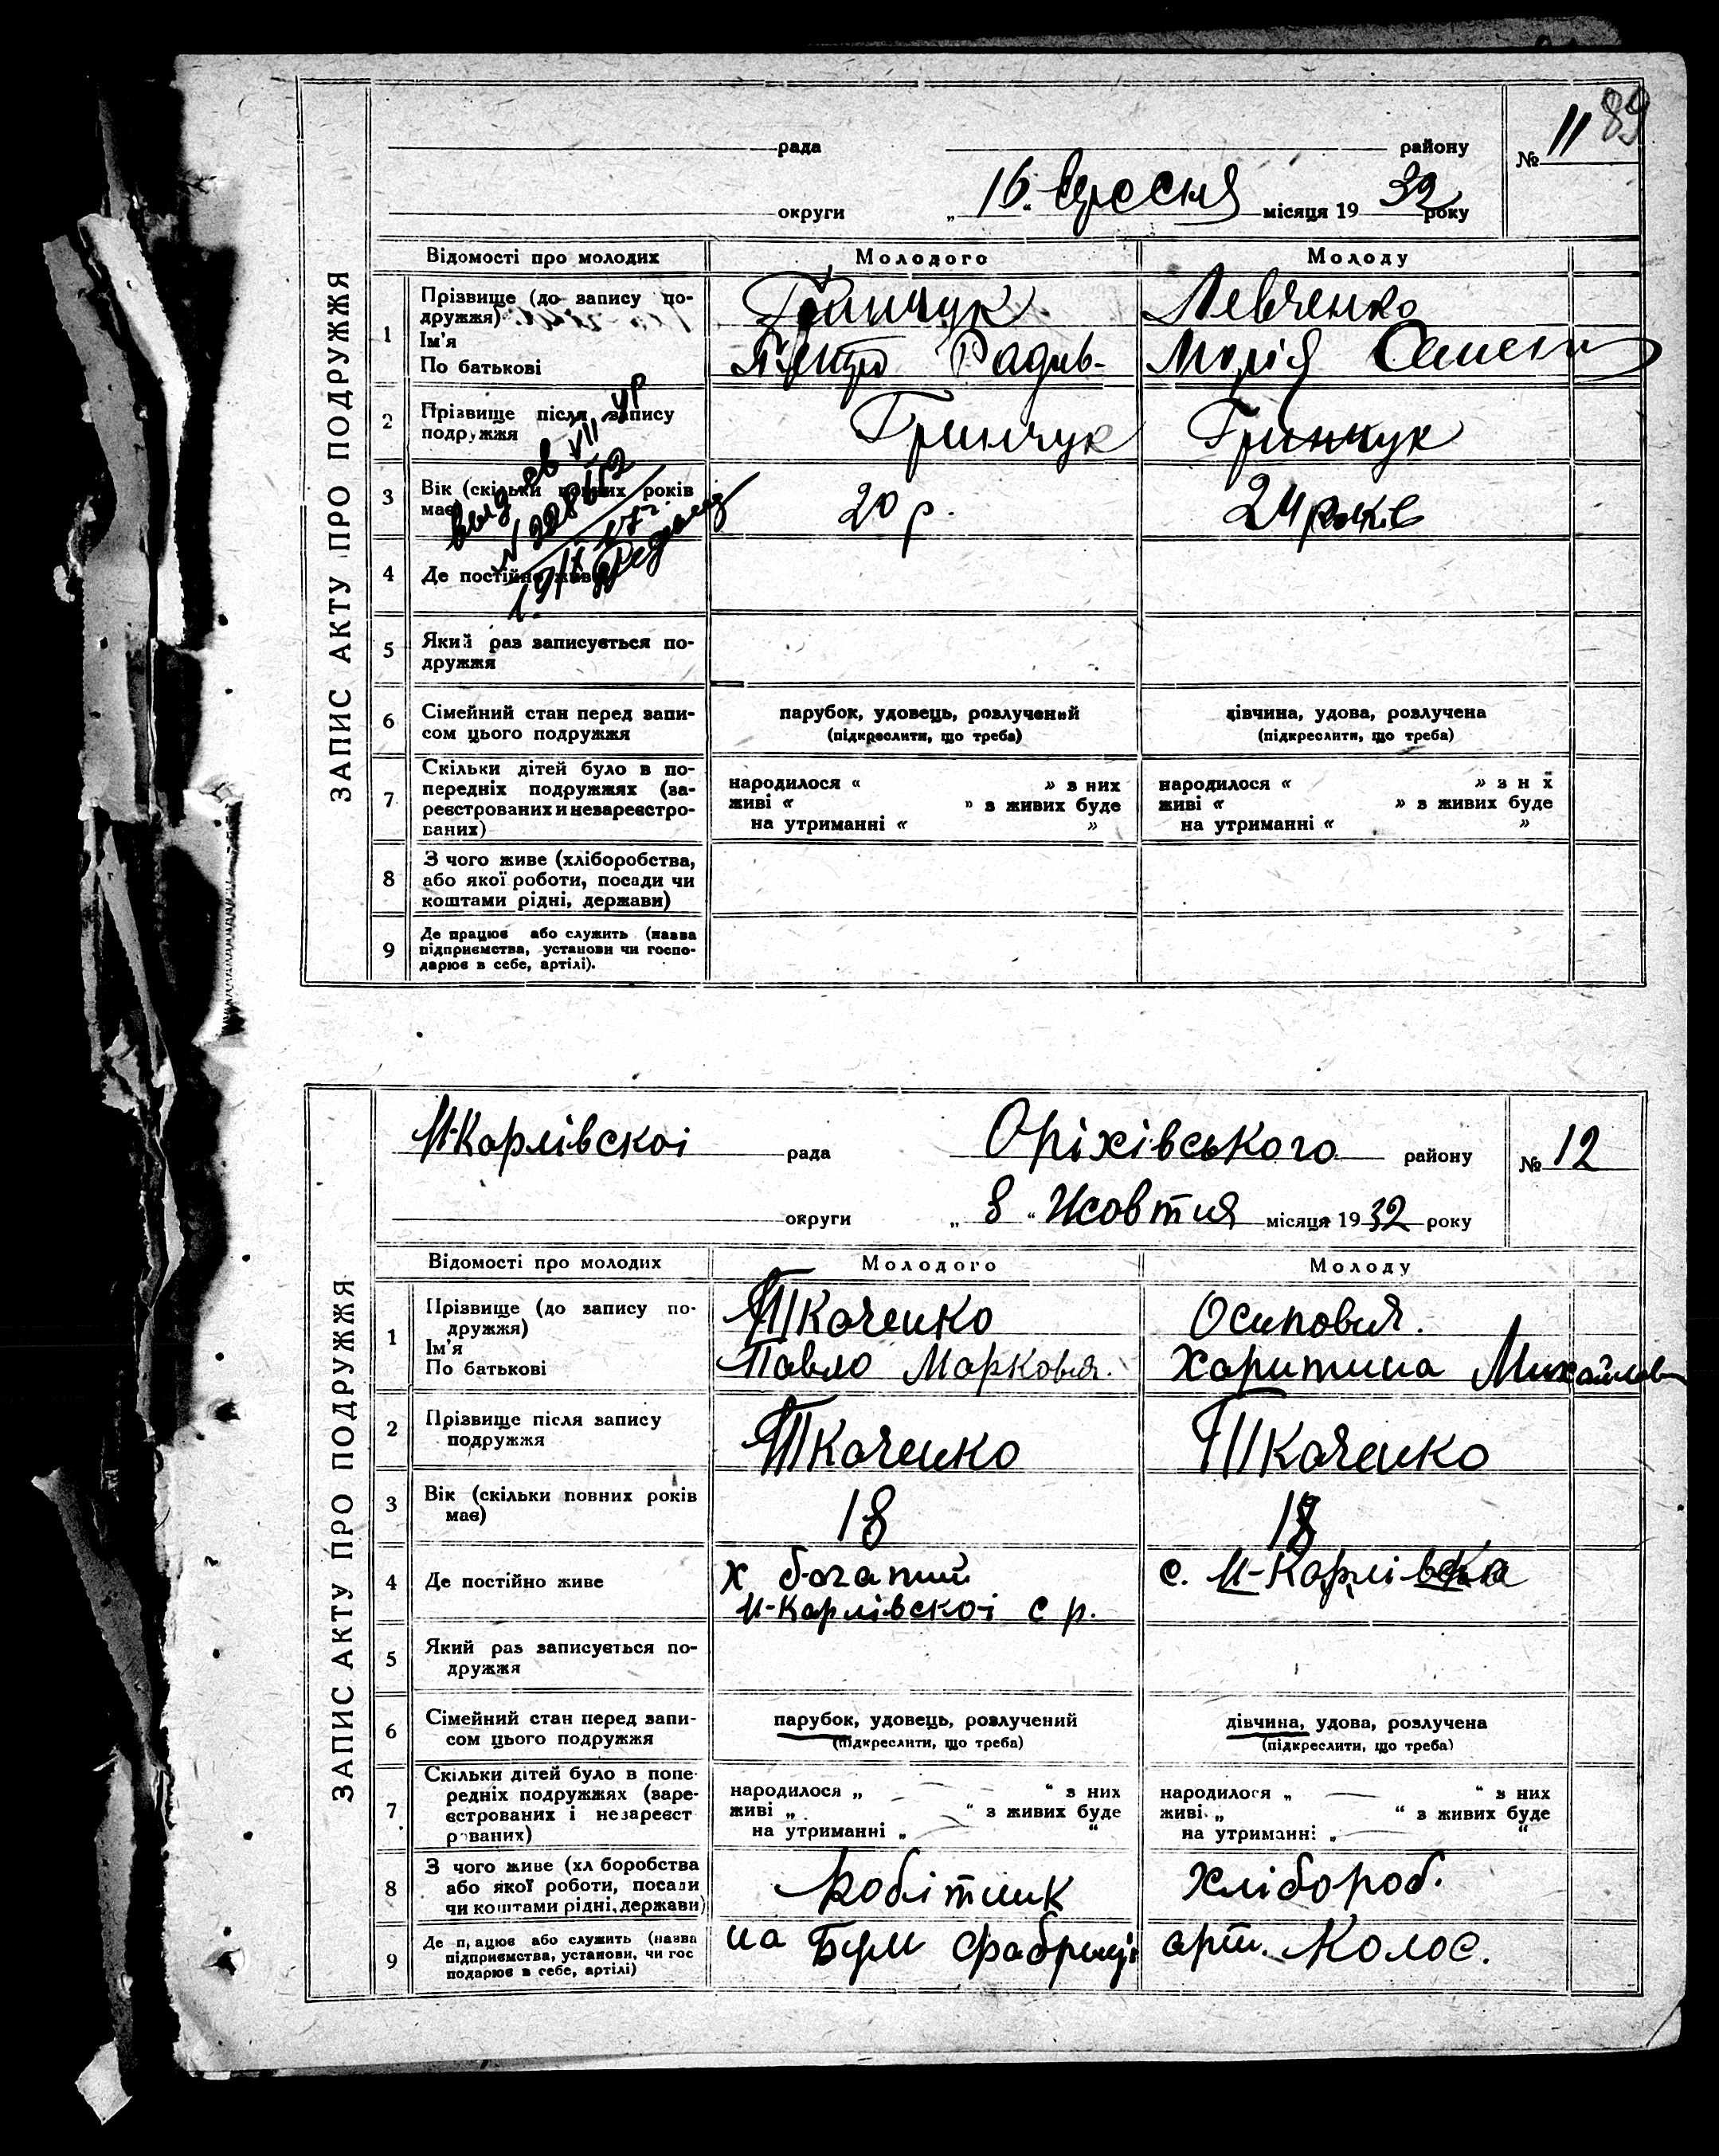 89
рада району № 11
округи „ 16 “ вересня місяця 19 32 року
ЗАПИС АКТУ ПРО ПОДРУЖЖЯ
Відомості про молодих Молодого Молоду
1 Прізвище (до запису по-
дружжя)
Ім'я
По батькові
Гринчук Левченко
Петро Радив- Марія Семен
2 Прізвище після запису
подружжя
Гринчук Гринчук
3 Вік (скільки повних років
має)
20 р. 24 років
выд. св VII ур
N 228652
4 Де постійно живе
5 Який раз записується по-
дружжя
6 Сімейний стан перед запи-
сом цього подружжя
парубок, удовець, розлучений дівчина, удова, розлучена
(підкреслити, що треба) (підкреслити, що треба)
7 Скільки дітей було в по-
передніх подружжях (за-
реєстрованих и незареєстро-
ваних)
народилося « » з них народилося « » з н х
живі « » з живих буде живі « » з живих буде
на утриманні « » на утриманні « »
8 З чого живе (хліборобства,
або якої роботи, посади чи
коштами рідні, держави)
9 Де працює або служить (назва
підприємства, установи чи госпо-
дарює в себе, артілі).
Н-Карлівскоі рада Оріхівського району № 12
округи „ 8 “ Жовтня місяця 19 32 року
ЗАПИС АКТУ ПРО ПОДРУЖЖЯ
Відомості про молодих Молодого Молоду
1 Прізвище (до запису по-
дружжя)
Ім'я
По батькові
Ткаченко Осипович.
Павло Маркович. Харитина Михайлов
2 Прізвище після запису
подружжя
Ткаченко Ткаченко
3 Вік (скільки повних років
має)
18 18
4 Де постійно живе
х богатий с. Н-Карлівка
Н-Карлівскоі с р.
5 Який раз записується по-
дружжя
6 Сімейний стан перед запи-
сом цього подружжя
парубок, удовець, розлучений дівчина, удова, розлучена
(підкреслити, що треба) (підкреслити, що треба)
7 Скільки дітей було в попе-
редніх подружжях (заре-
єстрованих і незареєст
рованих)
народилося „ — “ з них народилося „ — “ з них
живі „ — “ з живих буде живі „ — “ з живих буде
на утриманні „ — “ на утриманні „ — “
8 З чого живе (хл боробства
або якої роботи, посади
чи коштами рідні, держави)
Робітник хлібороб.
9 Де працює або служить (назва
підприємства, установи, чи гос
подарює в себе, артілі)
на Бум фабриці арт. Колос.